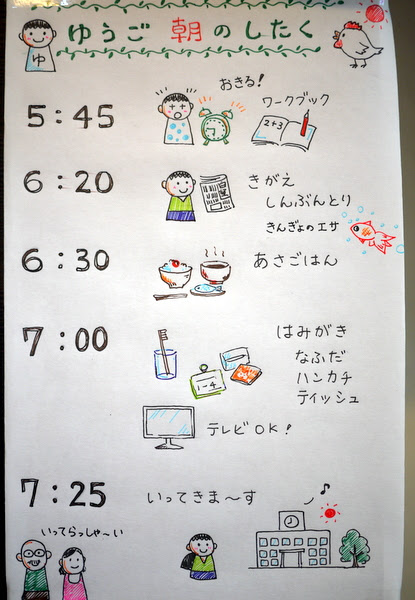 ゆうご 朝のしたく
ゆ
おきる!
5:45
ワークブック
2+3
6:20
きがえ
しんぶんとり
きんぎょのエサ
6:30
あさごはん
7:00
はみがき
なふだ
ハンカチ
ティッシュ
テレビOK!
7:25
いってきま〜す
いってらっしゃ〜い